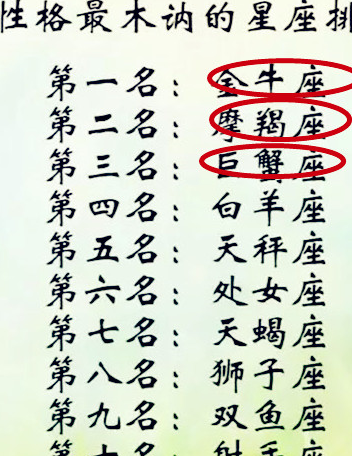 性格最木讷的星座排
第一名：金牛座
第二名：摩羯座
第三名：巨蟹座
第四名：白羊座
第五名：天秤座
第六名：处女座
第七名：天蝎座
第八名：狮子座
第九名：双鱼座